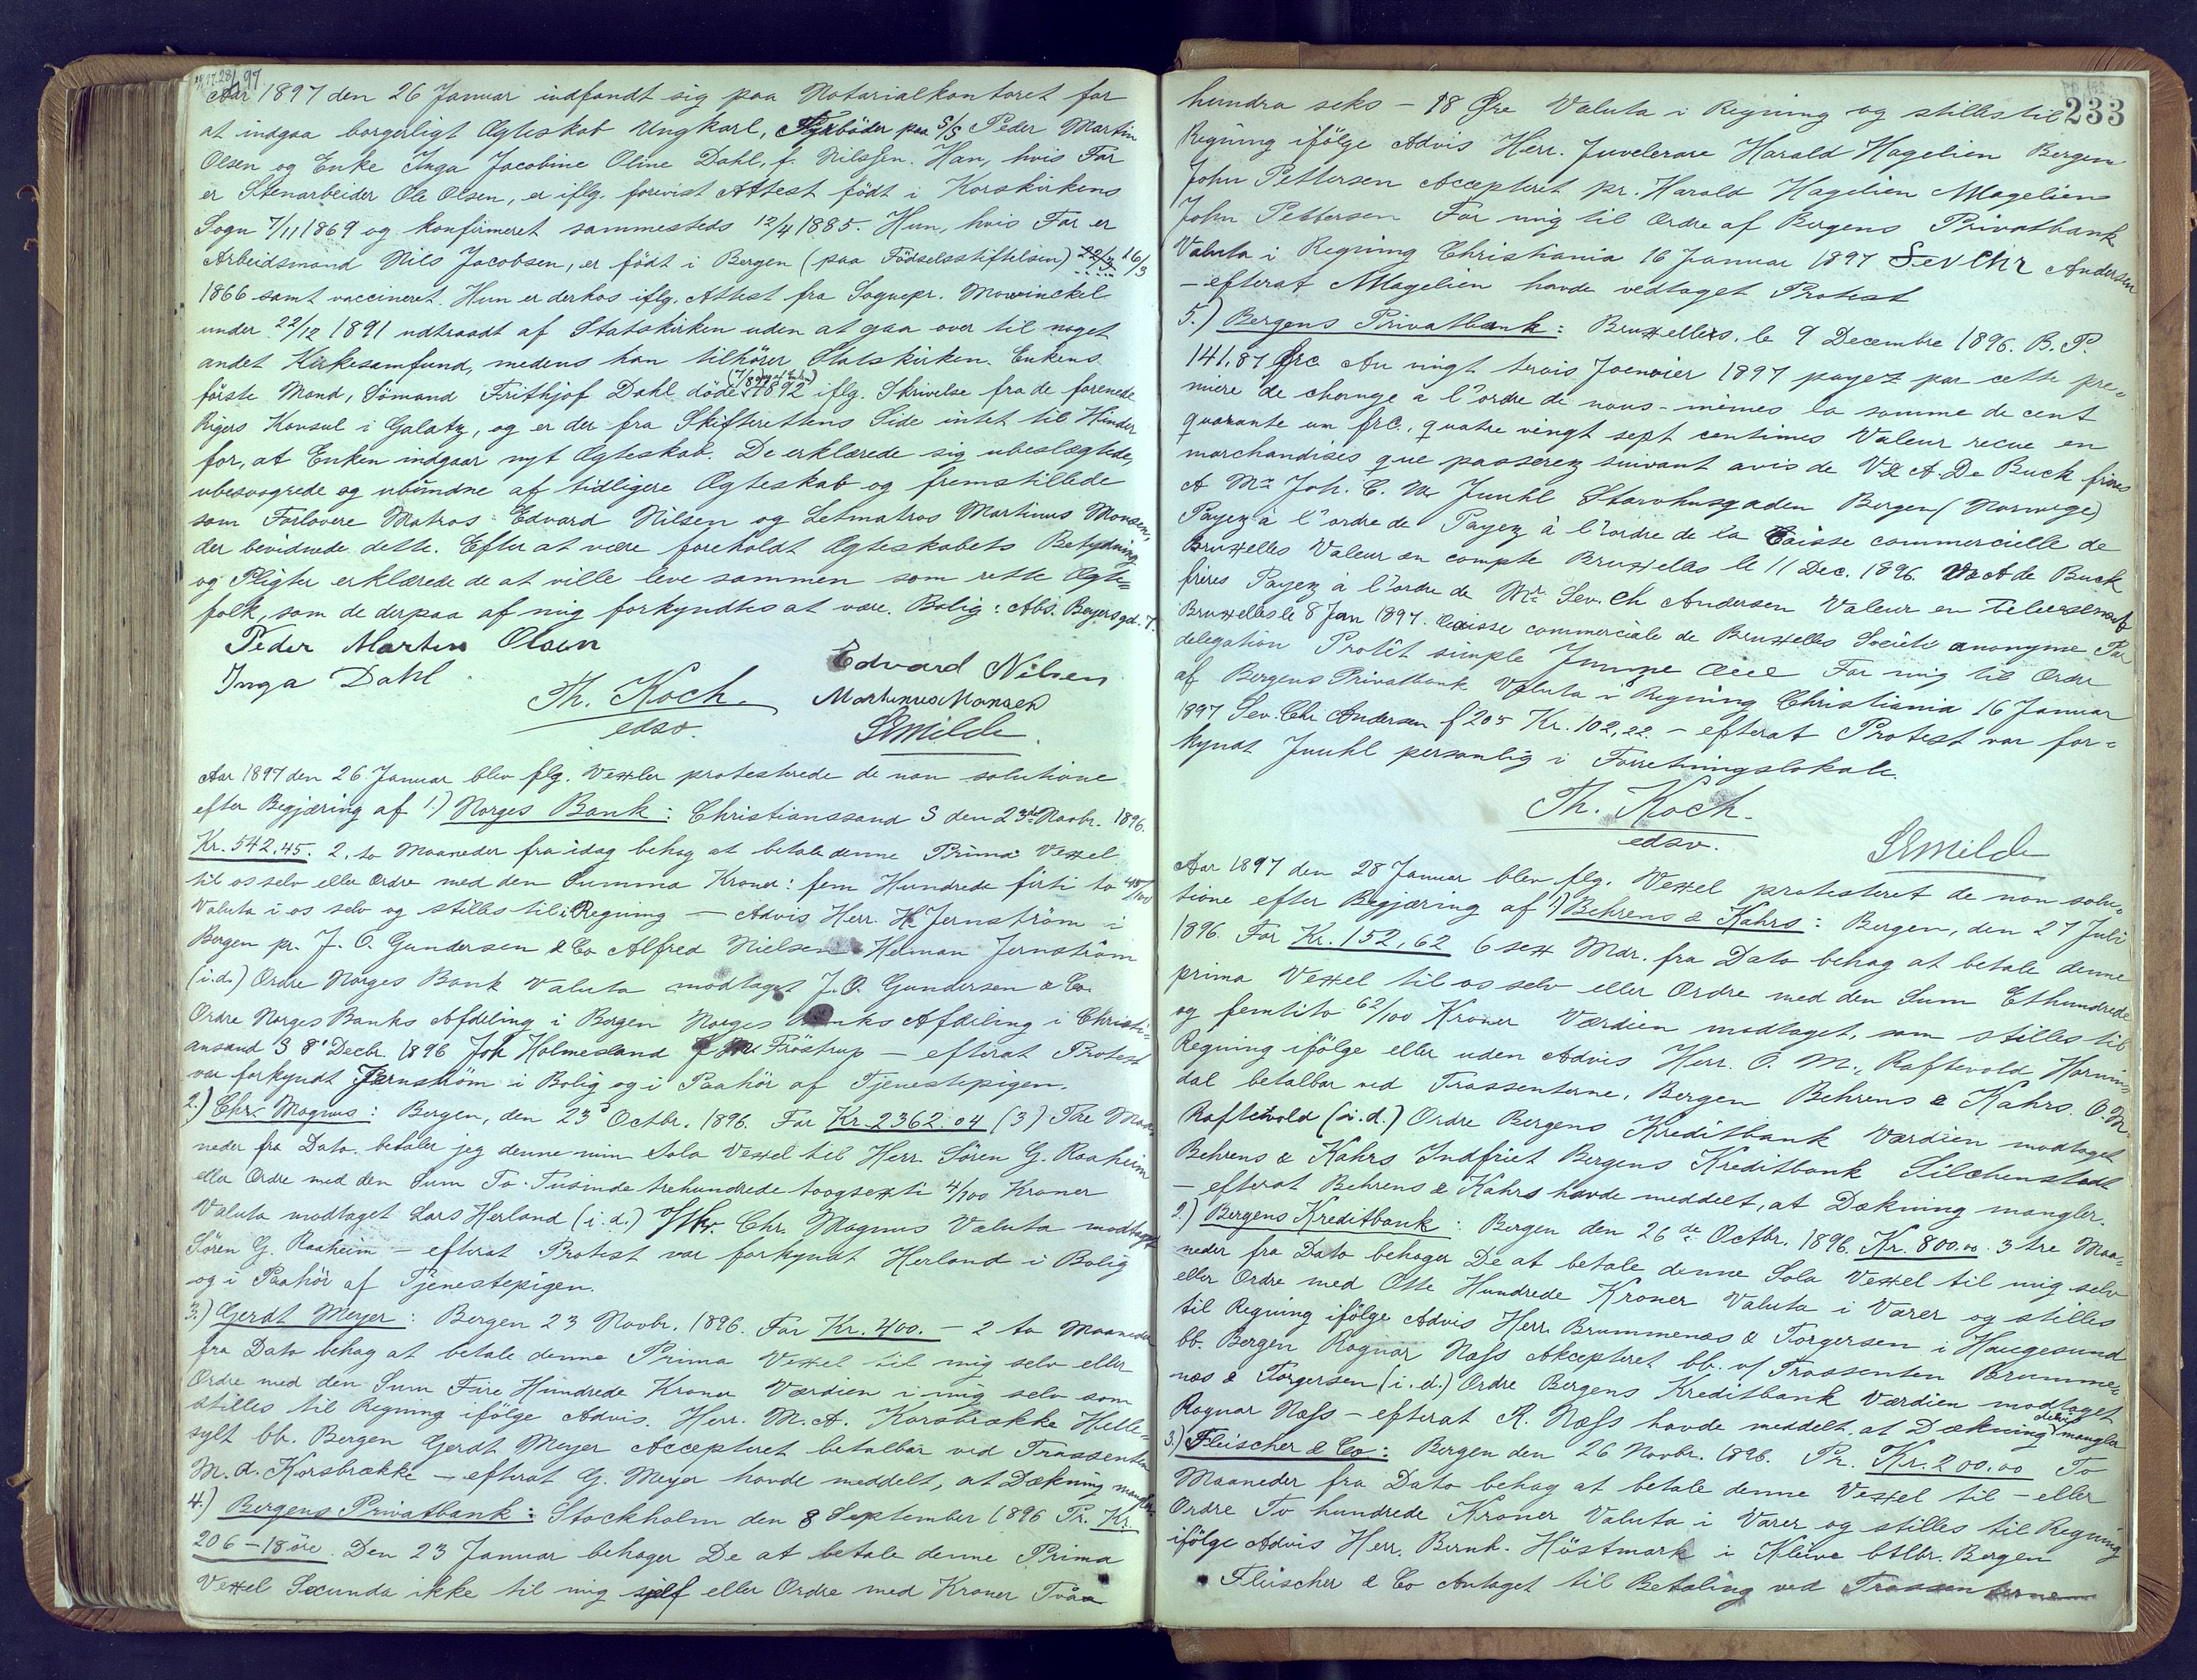 Aar 1897 den 26 Januar indfandt sig paa Notarialkontoret for
at indgaa borgerligt Ægteskab Ungkarl, Fyrböder paa S/S Peder Martin
Olsen og Enke Inga Jacobine Oline Dahl, f. Nilssen. Han, hvis Far
er Stenarbeider Ole Olsen, er iflg. forevist Attest födt i Korskirkens
Sogn 7/11 1869 og konfirmeret sammesteds 12/4 1885. Hun, hvis Far er
Arbeidsmand Nils Jacobsen, er födt i Bergen (paa Födselsstiftelsen) 22/3 16/3
1866 samt vaccineret. Hun er derhos iflg. Attest fra Sognepr. Mowinckel
under 22/12 1891 udtraadt af Statskirken uden at gaa over til noget
andet Kirkesamfund, medens han tilhörer Statskirken. Enkens
förste Mand, Sömand Frithjof Dahl döde 1892 iflg. Skrivelse fra de forenede
Rigers Konsul i Galatz, og er der fra Skifterettens Side intet til Hinder
for, at Enken indgaar nyt Ægteskab. De erklærede sig ubeslægtede,
ubesvogrede og ubundne af tidligere Ægteskab og fremstillede
som Forlovere Matros Edvard Nilsen og Letmatros Martinus Monsen,
der bevidnede dette. Efter at være foreholdt Ægteskabets Betydning
og Pligter erklærede de at ville leve sammen som rette Ægte=
folk, som de derpaa af mig forkyndtes at være. Bolig: Abs. Beyersgd. 7.
Peder Martin Olsen
Edvard Nilsen
Inga Dahl
Th. Koch.
Martinus Monsen
edsv.
SEMilde
Aar 1897 den 26 Januar blev flg. Vexler protesterede de non solutione
efter Begjæring af 1.) Norges Bank: Christianssand S den 23de Novbr. 1896.
Kr. 542.45. 2. to Maaneder fra idag behag at betale denne Prima Vexel
til os selv eller Ordre med den Summa Kroner: fem Hundrede firti to 45/100
Valuta i os selv og stilles til Regning — Advis Herr. H. Jernström i
Bergen pr. J. O. Gundersen & Co Alfred Nielsen Heman Jernström
(i.d.) Ordre Norges Bank Valuta modtaget J. O. Gundersen & Co.
Ordre Norges Banks Afdeling i Bergen Norges Banks Afdeling i Christi=
ansand S 8' Decbr. 1896 Joh Holmesland Fröstrup — efterat Protest
var forkyndt Jernström i Bolig og i Paahör af Tjenestepigen.
2.) Chr. Magnus: Bergen, den 23 Octbr. 1896. For Kr. 2362.04 (3) Tre Maa=
neder fra Dato betaler jeg denne min Sola Vexel til Herr Sören G. Raaheim
eller Ordre med den Sum To Tusinde trehundrede toogsexti 4/100 Kroner
Valuta modtaget Lars Herland (i.d.) Chr. Magnus Valuta modtaget
Sören G. Raaheim — efterat Protest var forkyndt Herland i Bolig
og i Paahör af Tjenestepigen.
3.) Gerdt Meyer: Bergen 23 Novbr. 1896. For Kr. 400. — 2 to Maaneder
fra Dato behag at betale denne Prima Vexel til mig selv eller
Ordre med den Sum Fire Hundrede Kroner Værdien i mig selv som
stilles til Regning ifölge Advis. Herr. M. A. Korsbrække Helle=
sylt bb. Bergen Gerdt Meyer Accepteret betalbar ved Trassenten
M. A. Korsbrække — efterat G. Meyer havde meddelt, at Dækning mangler.
4.) Bergens Privatbank: Stockholm den 8 September 1896 Pr. Kr.
206 – 18 öre. Den 23 Januar behager De at betale denne Prima
Vexel Secunda ikke til mig sjelf eller Ordre med Kroner Tvåa
233
hundra seks – 18 Øre Valuta i Regning og stilles til
Regning ifölge Advis Herr. Juvelerare Harald Hagelien Bergen
John Pettersen Accepteret pr. Harald Hagelien MHagelien
John Pettersen For mig til Ordre af Bergens Privatbank
Valuta i Regning Christiania 16 Januar 1897 Sev Chr Andersen
— efterat MHagelien havde vedtaget Protest
5.) Bergens Privatbank: Bruxelles, le 9 Decembre 1896. B. P.
141,87 frc Au vingt trois Janvier 1897 payez par cette pre=
mière de change à l'ordre de nous-mêmes la somme de cent
quarante un frc., quatre vingt sept centimes Valeur recue en
marchandises que passerez suivant avis de V. & A. De Buck frères
A Mr Joh. C. M. Juuhl Starvhusgaden Bergen (Norwege)
Payez à l'ordre de Payez à l'ordre de la Caisse commercielle de
Bruxelles Valeur en compte Bruxelles le 11 Dec. 1896. V & A de Buck
frères Payez à l'ordre de Mr. Sev. Ch Andersen Valeur en
Bruxelles le 8 Jan 1897. Caisse commerciale de Bruxelles Société anonyme Par
delegation Protêt simple For mig til Ordre
af Bergens Privatbank Valuta i Regning Christiania 16 Januar
1897 Sev. Chr Andersen f 205 Kr. 102,22 — efterat Protest var for=
kyndt Juuhl personlig i Forretningslokale.
Th. Koch.
edsv.
SEMilde
Aar 1897 den 28 Januar blev flg. Vexel protesteret de non solu=
tione efter Begjæring af 1) Behrens & Kahrs: Bergen, den 27 Juli
1896. For Kr. 152,62 6 sex Mdr. fra Dato behag at betale denne
prima Vexel til os selv eller Ordre med den Sum Ethundrede
og femtito 62/100 Kroner Værdien modtaget, som stilles til
Regning ifölge eller uden Advis Herr. O. M. Raftevold Hornin=
dal betalbar ved Trassenterne, Bergen Behrens & Kahrs. O. M.
Raftevold (i.d.) Ordre Bergens Kreditbank Værdien modtaget
Behrens & Kahrs Indfriet Bergens Kreditbank
— efterat Behrens & Kahrs havde meddelt, at Dækning mangler.
2.) Bergens Kreditbank: Bergen den 26de Octbr. 1896. Kr. 800.00. 3 tre Maa=
neder fra Dato behager De at betale denne Sola Vexel til mig selv
eller Ordre med Otte Hundrede Kroner Valuta i Varer og stilles
til Regning ifölge Advis Herr. Brummenæs & Torgersen i Haugesund
bb. Bergen Ragnar Næss Akcepteret bb. v/ Trassenten Brumme=
næs & Torgersen (i.d.) Ordre Bergens Kreditbank Værdien modtaget
Ragnar Næss – efterat R. Næss havde meddelt, at Dækning delvis mangler
3.) Fleischer & Co: Bergen den 26 Novbr. 1896. Pr. Kr. 200.00 To
Maaneder fra Dato behag at betale denne Vexel til — eller
Ordre To hundrede Kroner Valuta i Varer og stilles til Regning
ifölge Advis Herr. Bernh. Höstmark i Kleive btlbr. Bergen
Fleischer & Co Antaget til Betaling ved Trassenterne